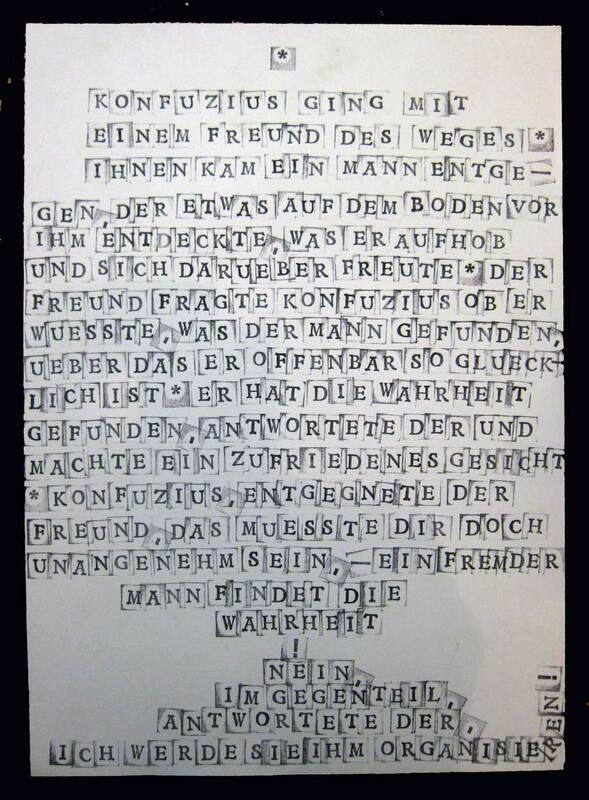 *
KONFUZIUS GING MIT
EINEM FREUND DES WEGES *
IHNEN KAM EIN MANN ENTGE—
GEN, DER ETWAS AUF DEM BODEN VOR
IHM ENTDECKTE, WAS ER AUFHOB
UND SICH DARUEBER FREUTE * DER
FREUND FRAGTE KONFUZIUS OB ER
WUESSTE, WAS DER MANN GEFUNDEN,
UEBER DAS ER OFFENBAR SO GLUECK-
LICH IST * ER HAT DIE WAHRHEIT
GEFUNDEN, ANTWORTETE DER UND
MACHTE EIN ZUFRIEDENES GESICHT
* KONFUZIUS, ENTGEGNETE DER
FREUND, DAS MUESSTE DIR DOCH
UNANGENEHM SEIN, — EIN FREMDER
MANN FINDET DIE
WAHRHEIT
!
NEIN,
IM GEGENTEIL,
ANTWORTETE DER,
ICH WERDE SIE IHM ORGANISIEREN!